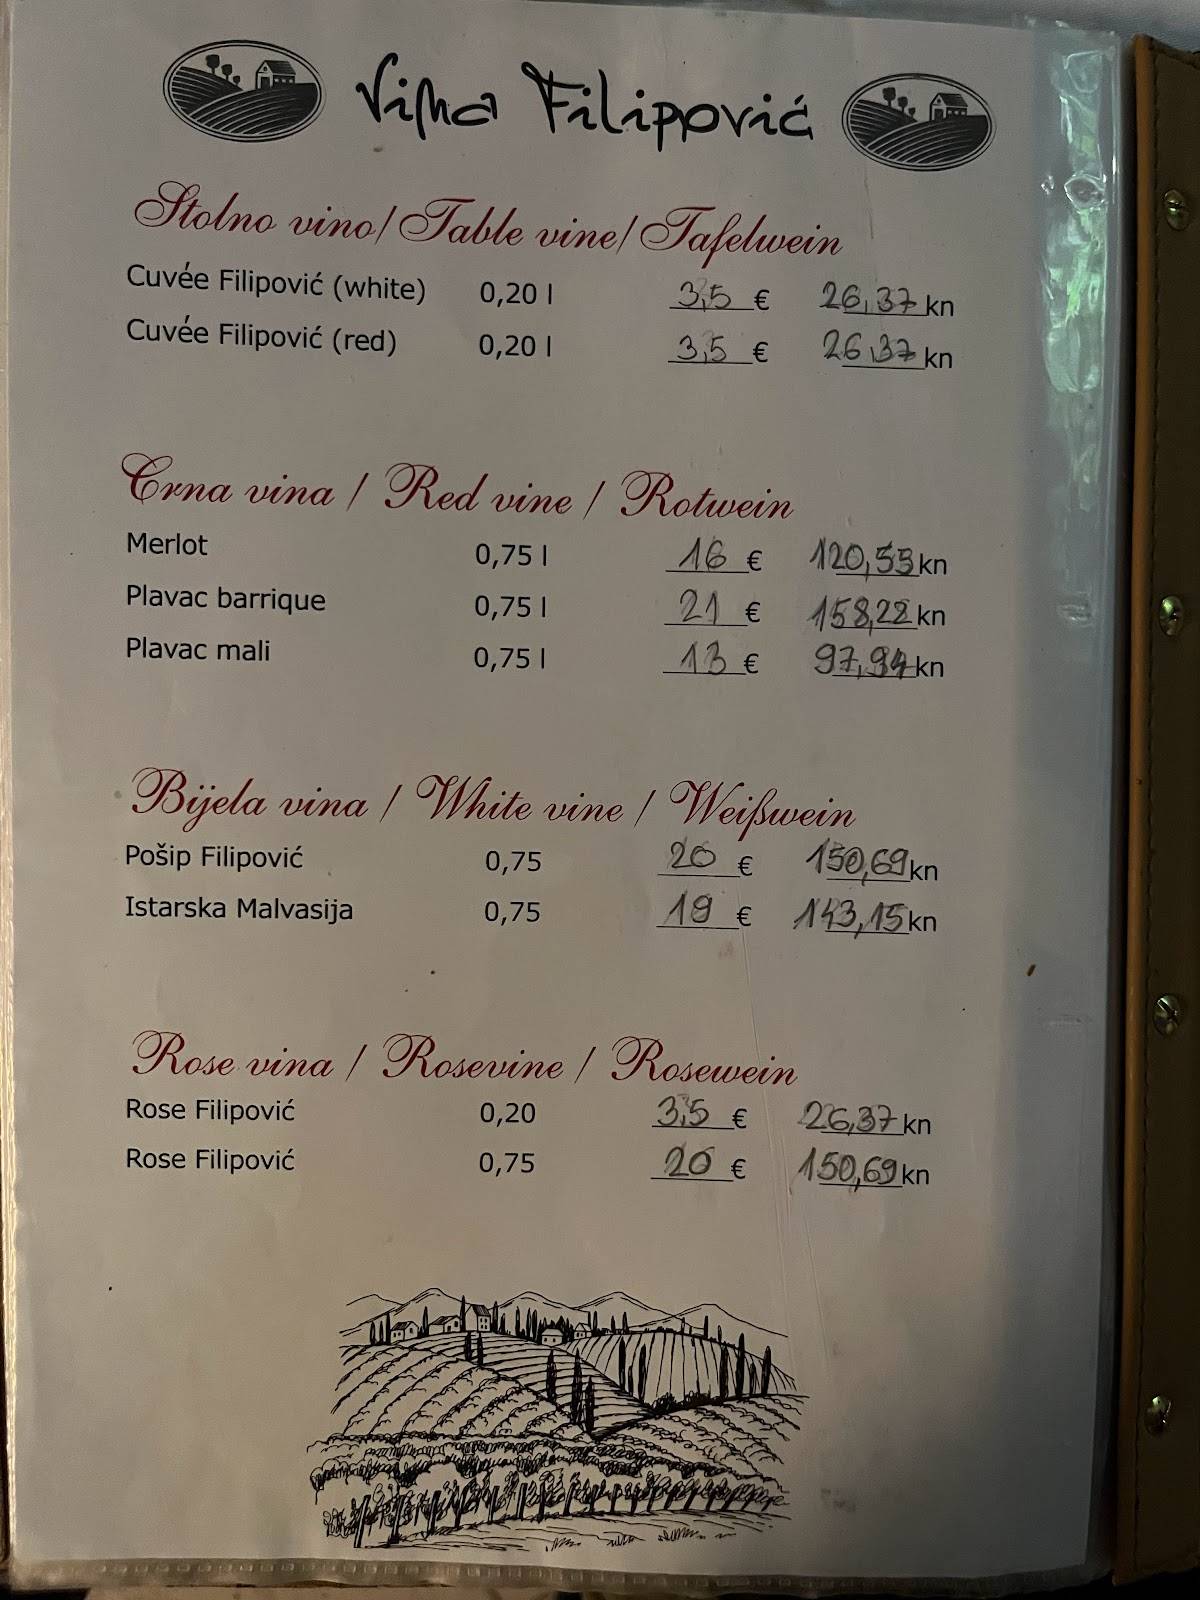 Vina Filipović
Stolno vino/Table vine/Tafelwein
Cuvée Filipović (white) 0,20 l 3,5 € 26,37 kn
Cuvée Filipović (red) 0,20 l 3,5 € 26,37 kn
Crna vina / Red vine / Rotwein
Merlot 0,75 l 16 € 120,55 kn
Plavac barrique 0,75 l 21 € 158,22 kn
Plavac mali 0,75 l 13 € 97,94 kn
Bijela vina / White vine / Weißwein
Pošip Filipović 0,75 20 € 150,69 kn
Istarska Malvasija 0,75 19 € 143,15 kn
Rose vina / Rosevine / Rosewein
Rose Filipović 0,20 3,5 € 26,37 kn
Rose Filipović 0,75 20 € 150,69 kn